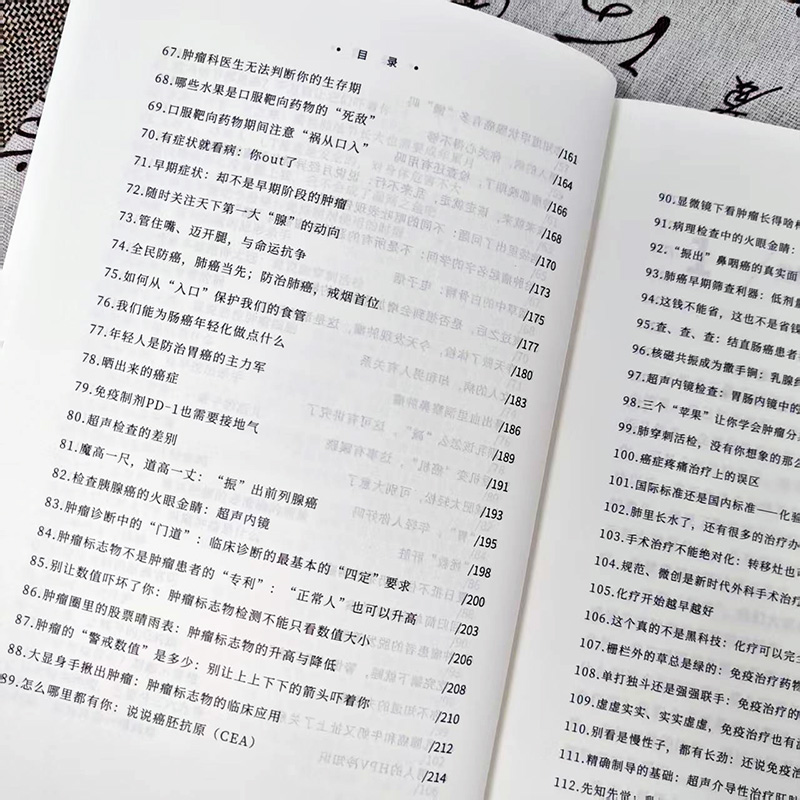 • 目 录 •
67.肿瘤科医生无法判断你的生存期 /161
68.哪些水果是口服靶向药物的“死敌” /164
69.口服靶向药物期间注意“祸从口入” /166
70.有症状就看病：你out了 /168
71.早期症状：却不是早期阶段的肿瘤 /170
72.随时关注天下第一大“腺”的动向 /173
73.管住嘴、迈开腿，与命运抗争 /175
74.全民防癌，肺癌当先；防治肺癌，戒烟首位 /177
75.如何从“入口”保护我们的食管 /180
76.我们能为肠癌年轻化做点什么 /183
77.年轻人是防治胃癌的主力军 /186
78.晒出来的癌症 /189
79.免疫制剂PD-1也需要接地气 /191
80.超声检查的差别 /193
81.魔高一尺，道高一丈：“振”出前列腺癌 /195
82.检查胰腺癌的火眼金睛：超声内镜 /198
83.肿瘤诊断中的“门道”：临床诊断的最基本的“四定”要求 /200
84.肿瘤标志物不是肿瘤患者的“专利”：“正常人”也可以升高 /203
85.别让数值吓坏了你：肿瘤标志物检测不能只看数值大小 /206
86.肿瘤圈里的股票晴雨表：肿瘤标志物的升高与降低 /208
87.肿瘤的“警戒数值”是多少：别让上上下下的箭头吓着你 /210
88.大显身手揪出肿瘤：肿瘤标志物的临床应用 /212
89.怎么哪里都有你：说说癌胚抗原（CEA） /214
90.显微镜下看肿瘤长得啥样
91.病理检查中的火眼金睛：
92.“振出”鼻咽癌的真实面
93.肺癌早期筛查利器：低剂量
94.这钱不能省，这也不是省钱
95.查、查、查：结直肠癌患者
96.核磁共振成为撒手锏：乳腺
97.超声内镜检查：胃肠内镜中的
98.三个“苹果”让你学会肿瘤分
99.肺穿刺活检，没有你想象的那么
100.癌症疼痛治疗上的误区
101.国际标准还是国内标准——化验
102.肺里长水了，还有很多的治疗办
103.手术治疗不能绝对化：转移灶也可
104.规范、微创是新时代外科手术治
105.化疗开始越早越好
106.这个真的不是黑科技：化疗可以完
107.栅栏外的草总是绿的：免疫治疗药物
108.单打独斗还是强强联手：免疫治疗的
109.虚虚实实、实实虚虚，免疫治疗也有
110.别看是慢性子，都有长劲：还说免疫治
111.精确制导的基础：超声介导性治疗肝
112.先知先觉：